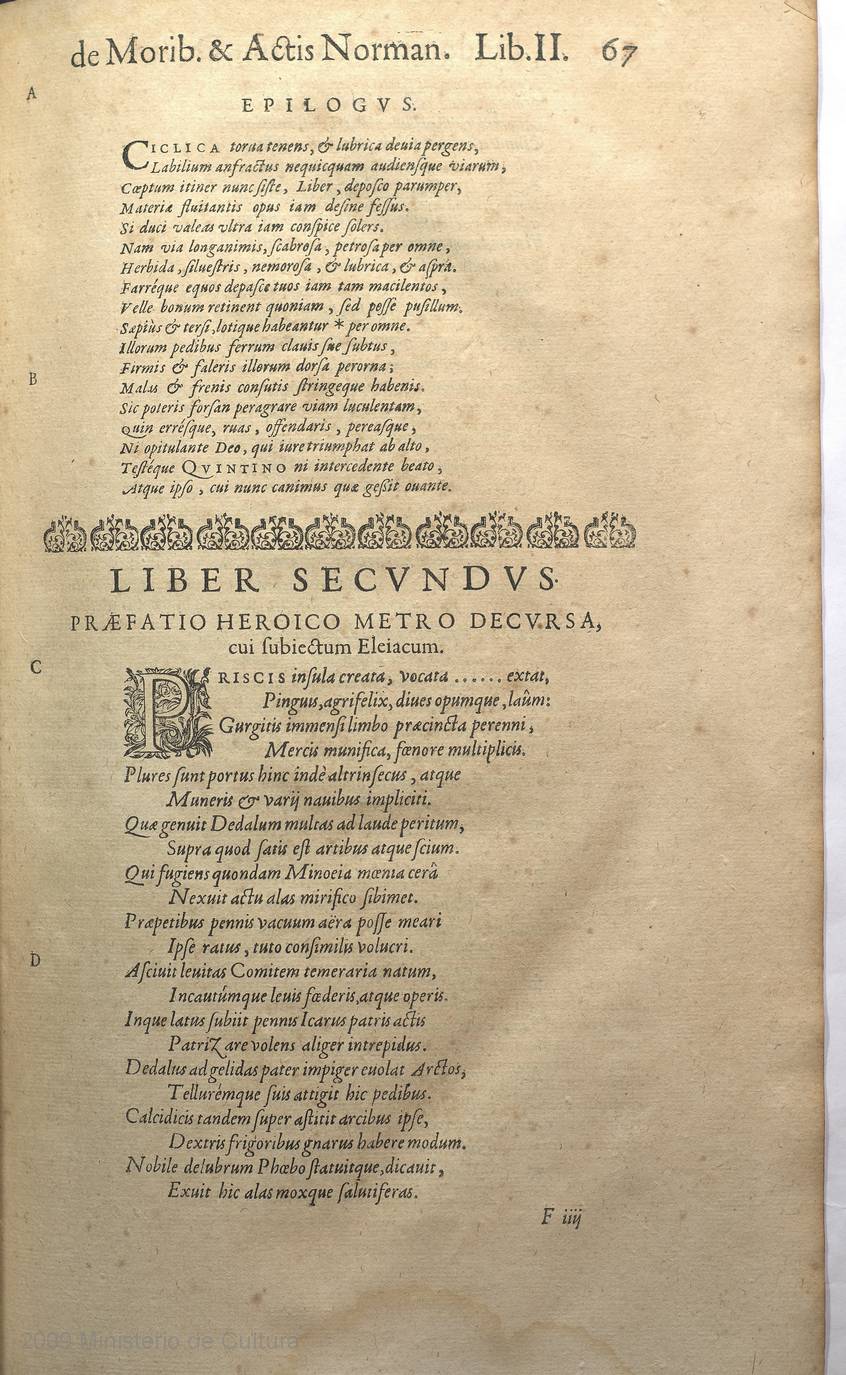 de Morib. & Actis Norman. Lib. II. 67
A
EPILOGVS.
CICLICA torua tenens, & lubrica deuia pergens,
Labilium anfractus nequicquam audiensque viarum,
Cœptum itiner nunc siste, Liber, deposco parumper,
Materiæ fluitantis opus iam desine fessus.
Si duci valeas vltra iam conspice solers.
Nam via longanimis, scabrosa, petrosa per omne,
Herbida, siluestris, nemorosa, & lubrica, & asprá.
Farréque equos depasce tuos iam tam macilentos,
Velle bonum retinent quoniam, sed posse pusillum.
Sæpiùs & tersi, lotique habeantur * per omne.
Illorum pedibus ferrum clauis sue subtus,
B
Firmis & faleris illorum dorsa perorna;
Malas & frenis consutis stringeque habenis.
Sic poteris forsan peragrare viam luculentam,
Quin errésque, ruas, offendaris, pereasque,
Ni opitulante Deo, qui iure triumphat ab alto,
Testéque QVINTINO ni intercedente beato,
Atque ipso, cui nunc canimus quæ gessit ouante.
LIBER SECVNDVS.
PRÆFATIO HEROICO METRO DECVRSA,
cui subiectum Eleiacum.
C
PRISCIS insula creata, vocata ...... extat,
Pinguis, agrifelix, diues opumque, laûm:
Gurgitis immensi limbo præcincta perenni,
Mercis munifica, fœnore multiplicis.
Plures sunt portus hinc indè altrinsecus, atque
Muneris & varij nauibus impliciti.
Quæ genuit Dedalum multas ad laude peritum,
Supra quod satis est artibus atque scium.
Qui fugiens quondam Minoeia mœnia cerâ
Nexuit actu alas mirifico sibimet.
Præpetibus pennis vacuum aëra posse meari
Ipse ratus, tuto consimilis volucri.
D
Asciuit leuitas Comitem temeraria natum,
Incautúmque leuis fœderis, atque operis.
Inque latus subiit pennis Icarus patris actis
Patrizare volens aliger intrepidus.
Dedalus ad gelidas pater impiger euolat Arctos,
Tellurémque suis attigit hic pedibus.
Calcidicis tandem super astitit arcibus ipse,
Dextris frigoribus gnarus habere modum.
Nobile delubrum Phœbo statuitque, dicauit,
Exuit hic alas moxque salutiferas.
F iiij
2009 Ministerio de Cultura